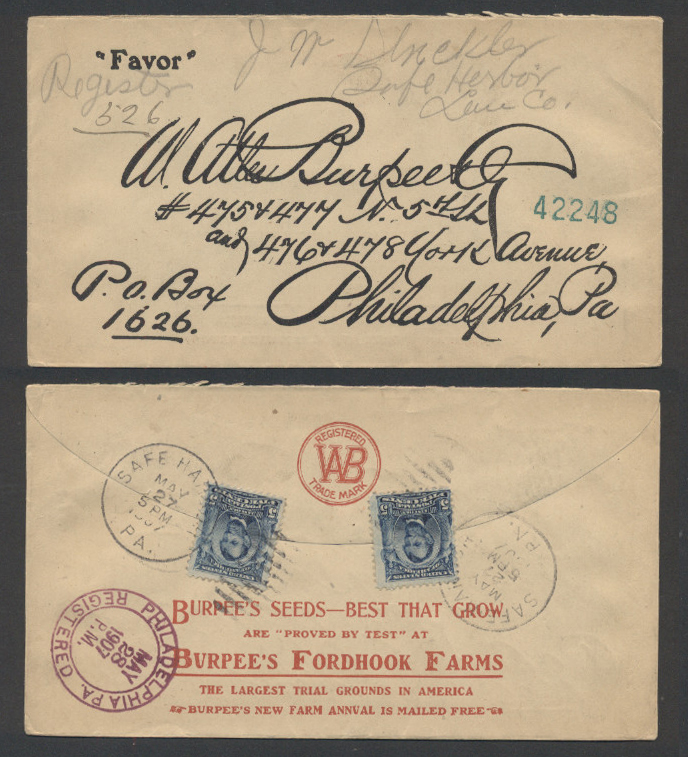 "Favor"
J W
Safe Harbor
Lan Co.
Register
526
W. Atlee Burpee & Co
# 475 & 477 N. 5th St.
42248
and 476 & 478 York Avenue,
P.O. Box
1626.
Philadelphia, Pa
REGISTERED
WAB
TRADE MARK
SAFE HA
MAY
27
5 PM
1907
PA.
SAFE HA
MAY
27
5 PM
PA.
BURPEE'S SEEDS—BEST THAT GROW
ARE "PROVED BY TEST" AT
BURPEE'S FORDHOOK FARMS
THE LARGEST TRIAL GROUNDS IN AMERICA
BURPEE'S NEW FARM ANNVAL IS MAILED FREE
PHILADELPHIA PA. REGISTERED
MAY
28
1907
P.M.